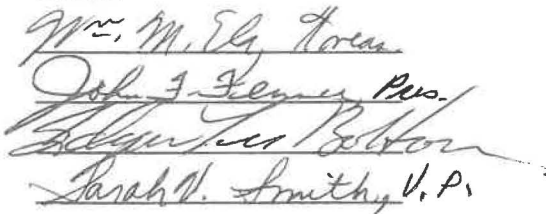 Wm. M. Ely, Treas.
John F. Pres.
Edgar Lee Bolton
Sarah V. Smith, V.P.